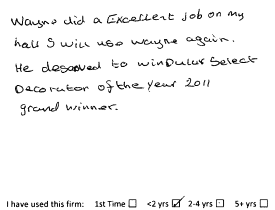 Wayne did a Excellent job on my
hall I will use Wayne again.
He deserved to win Dulux Select
Decorator of the Year 2011
grand winner.
I have used this firm: 1st Time ☐ <2 yrs ☑ 2-4 yrs ☐ 5+ yrs ☐